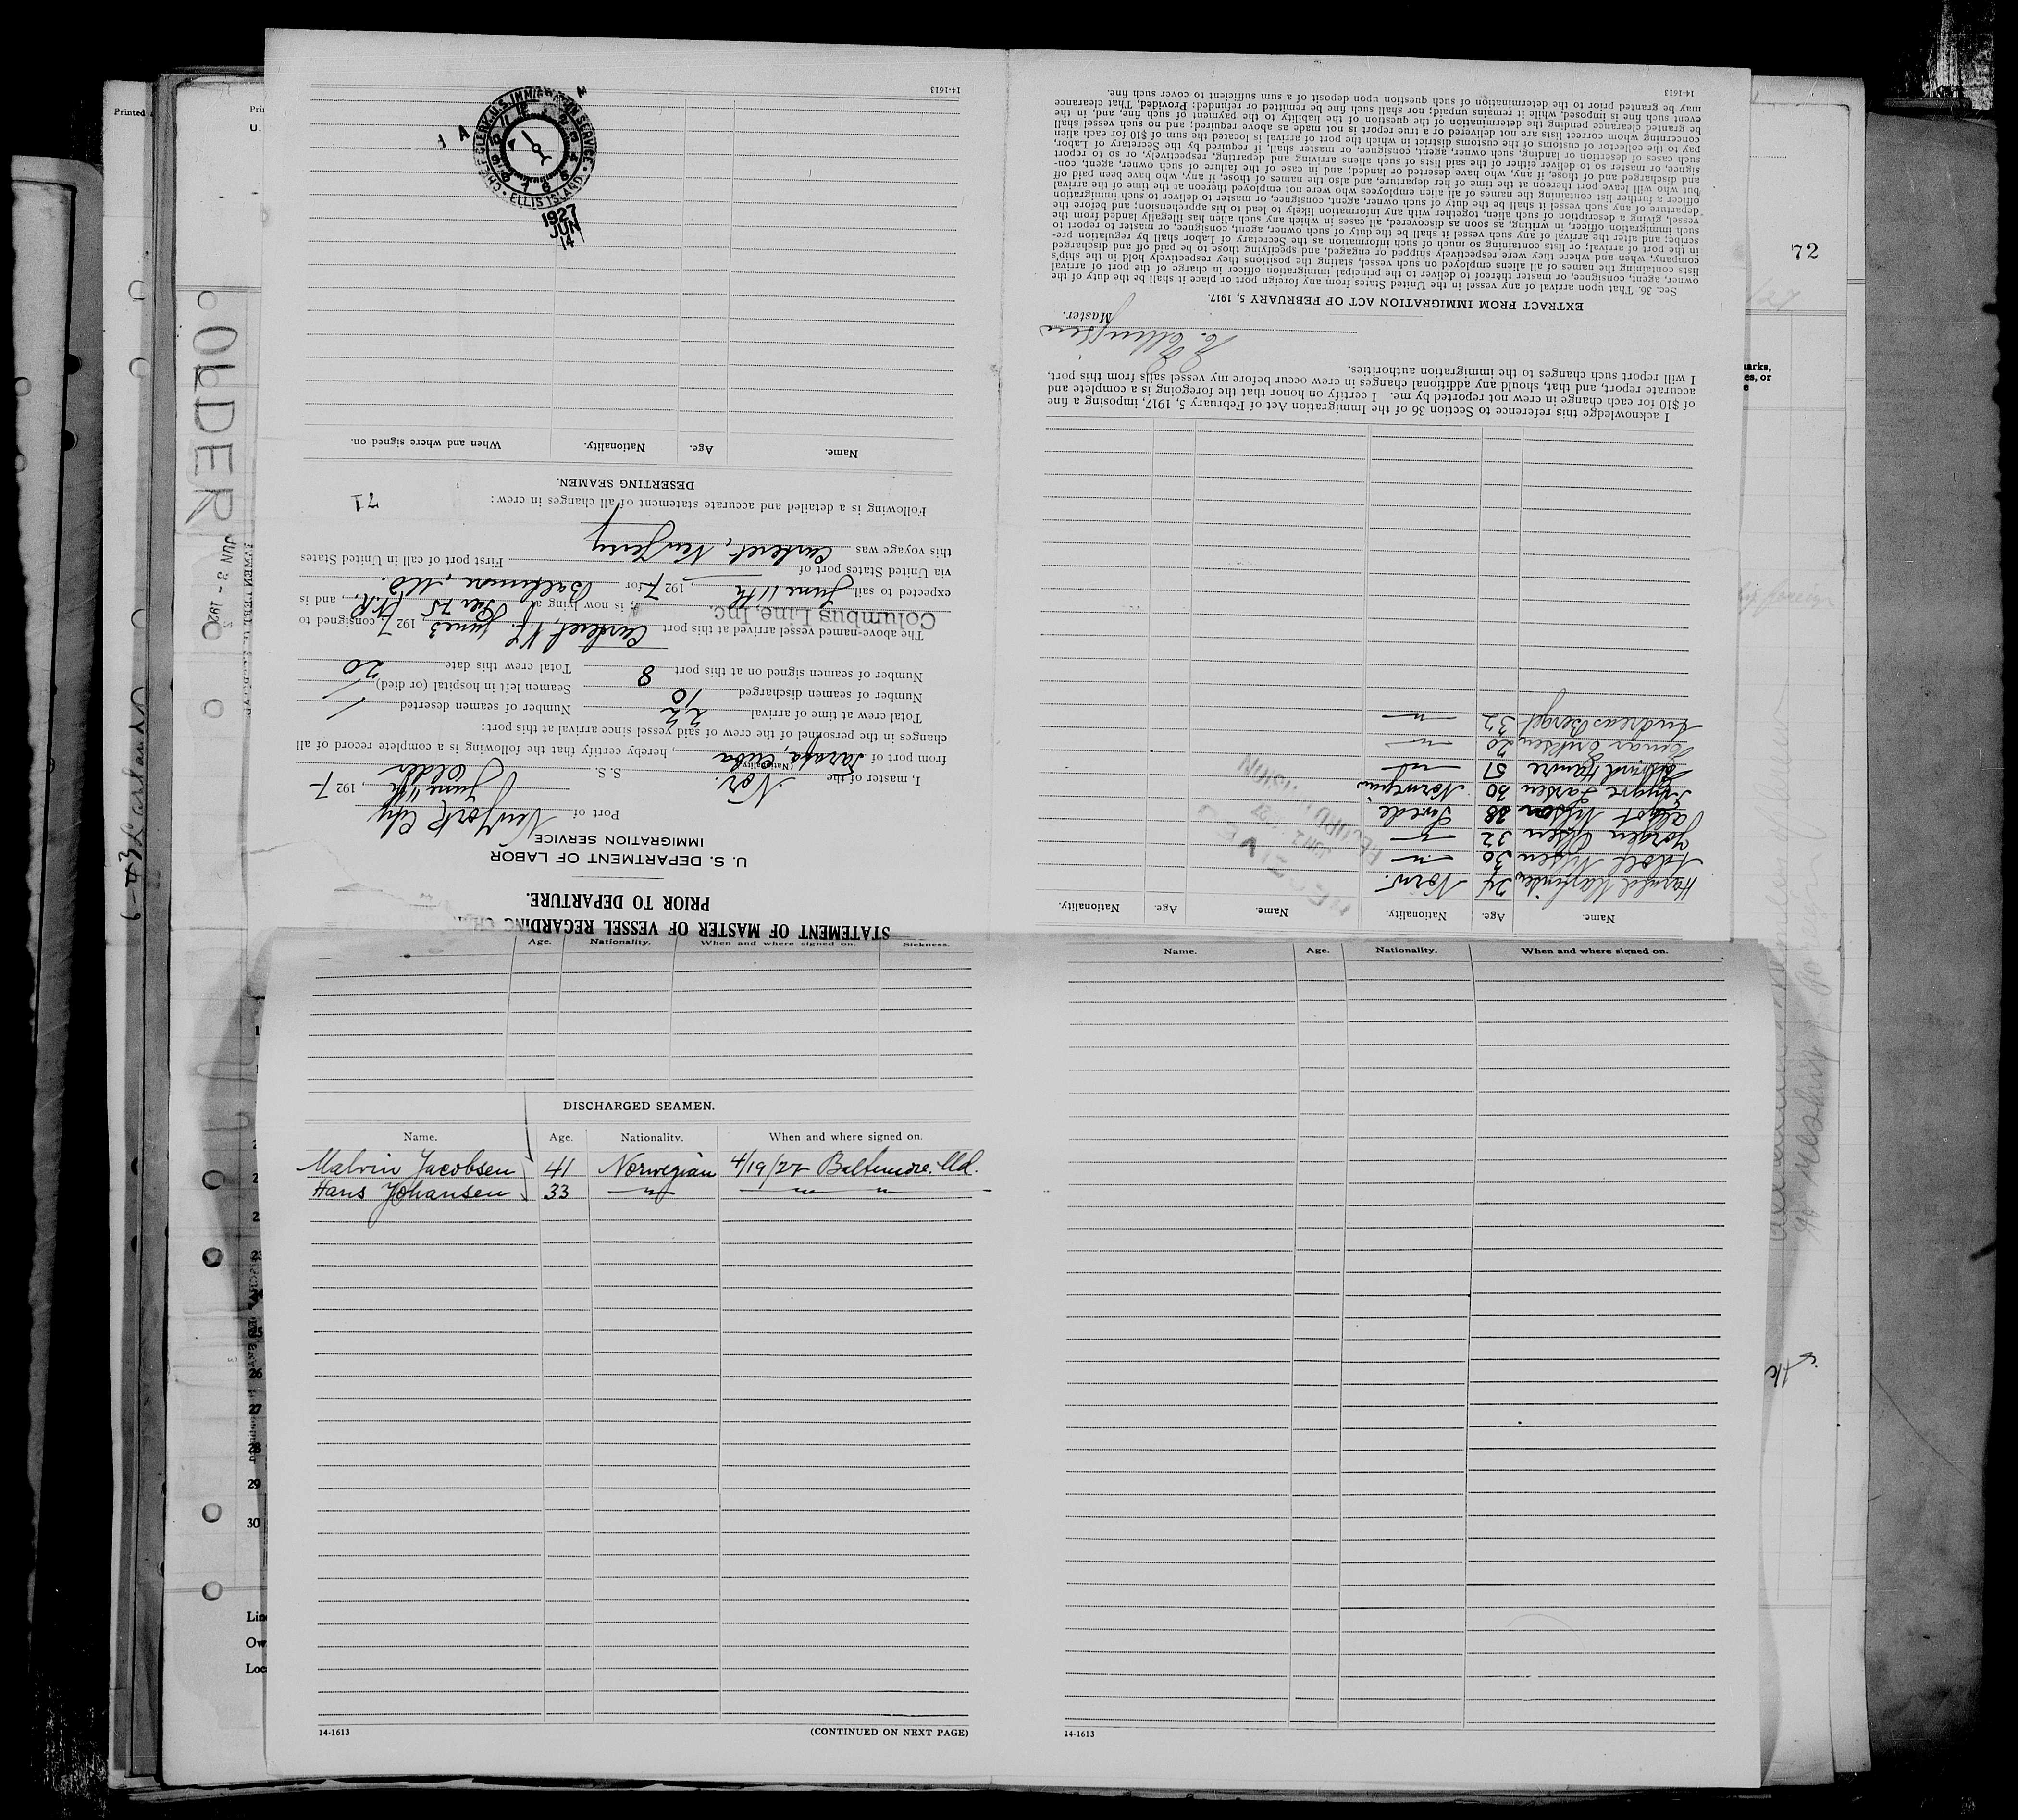 STATEMENT OF MASTER OF VESSEL REGARDING
PRIOR TO DEPARTURE.
U. S. DEPARTMENT OF LABOR
IMMIGRATION SERVICE
Port of New York City
June 11th, 1927
I, master of the Nor. (Nationality) S. S. Older
from port of Tarafa, Cuba, hereby certify that the following is a complete record of all
changes in the personnel of the crew of said vessel since arrival at this port:
Total crew at time of arrival 22 Number of seamen deserted /
Number of seamen discharged 10 Seamen left in hospital (or died) /
Number of seamen signed on at this port 8 Total crew this date 20
The above-named vessel arrived at this port Carteret, N.J. June 3 1927 consigned to
Columbus Line, Inc., is now lying at Pier 75 N.R., and is
expected to sail June 11th, 1927 for Baltimore, Md.
via United States port of First port of call in United States
this voyage was Carteret, New Jersey
Following is a detailed and accurate statement of all changes in crew:
71
DESERTING SEAMEN.
Name. Age. Nationality. When and where signed on.
1927
JUN
14
CHIEF CLERK, U.S. IMMIGRATION SERVICE
ELLIS ISLAND
14-1613
Age. Nationality. When and where signed on. Sickness.
DISCHARGED SEAMEN.
Name. Age. Nationality. When and where signed on.
Malvin Jacobsen 41 Norwegian 4/19/27 Baltimore. Md.
Hans Johansen 33 " " "
14-1613 (CONTINUED ON NEXT PAGE)
Name. Age. Nationality. When and where signed on.
14-1613
Name. Age. Nationality. Name. Age. Nationality.
Harald 24 Norw.
Adolf Nilsen 30 "
Jorgen Olsen 32 "
Algot Nilsson 38 Swede
Yngvar Larsen 30 Norwegian
Hamre 51 "
Eriksen 20 "
Andreas Berget 32 "
RECEIVED
RECORD DIVISION
I acknowledge this reference to Section 36 of the Immigration Act of February 5, 1917, imposing a fine
of $10 for each change in crew not reported by me. I certify on honor that the foregoing is a complete and
accurate report, and that, should any additional changes in crew occur before my vessel sails from this port,
I will report such changes to the immigration authorities.
Master.
EXTRACT FROM IMMIGRATION ACT OF FEBRUARY 5, 1917.
Sec. 36. That upon arrival of any vessel in the United States from any foreign port or place it shall be the duty of the
owner, agent, consignee, or master thereof to deliver to the principal immigration officer in charge of the port of arrival
lists containing the names of all aliens employed on such vessel, stating the positions they respectively hold in the ship's
company, when and where they were respectively shipped or engaged, and specifying those to be paid off and discharged
in the port of arrival; or lists containing so much of such information as the Secretary of Labor shall by regulation pre-
scribe; and after the arrival of any such vessel it shall be the duty of such owner, agent, consignee, or master to report to
such immigration officer, in writing, as soon as discovered, all cases in which any such alien has illegally landed from the
vessel, giving a description of such alien, together with any information likely to lead to his apprehension; and before the
departure of any such vessel it shall be the duty of such owner, agent, consignee, or master to deliver to such immigration
officer a further list containing the names of all alien employees who were not employed thereon at the time of the arrival
but who will leave port thereon at the time of her departure, and also the names of those, if any, who have been paid off
and discharged and of those, if any, who have deserted or landed; and in case of the failure of such owner, agent, con-
signee, or master so to deliver either of the said lists of such aliens arriving and departing, respectively, or so to report
such cases of desertion or landing, such owner, agent, consignee, or master shall if required by the Secretary of Labor,
pay to the collector of customs of the customs district in which the port of arrival is located the sum of $10 for each alien
concerning whom correct lists are not delivered or a true report is not made as above required; and no such vessel shall
be granted clearance pending the determination of the question of the liability to the payment of such fine, and, in the
event such fine is imposed, while it remains unpaid; nor shall such fine be remitted or refunded: Provided, That clearance
may be granted prior to the determination of such question upon deposit of a sum sufficient to cover such fine.
14-1613
OLDER
72
Printed
25
26
27
28
29
30